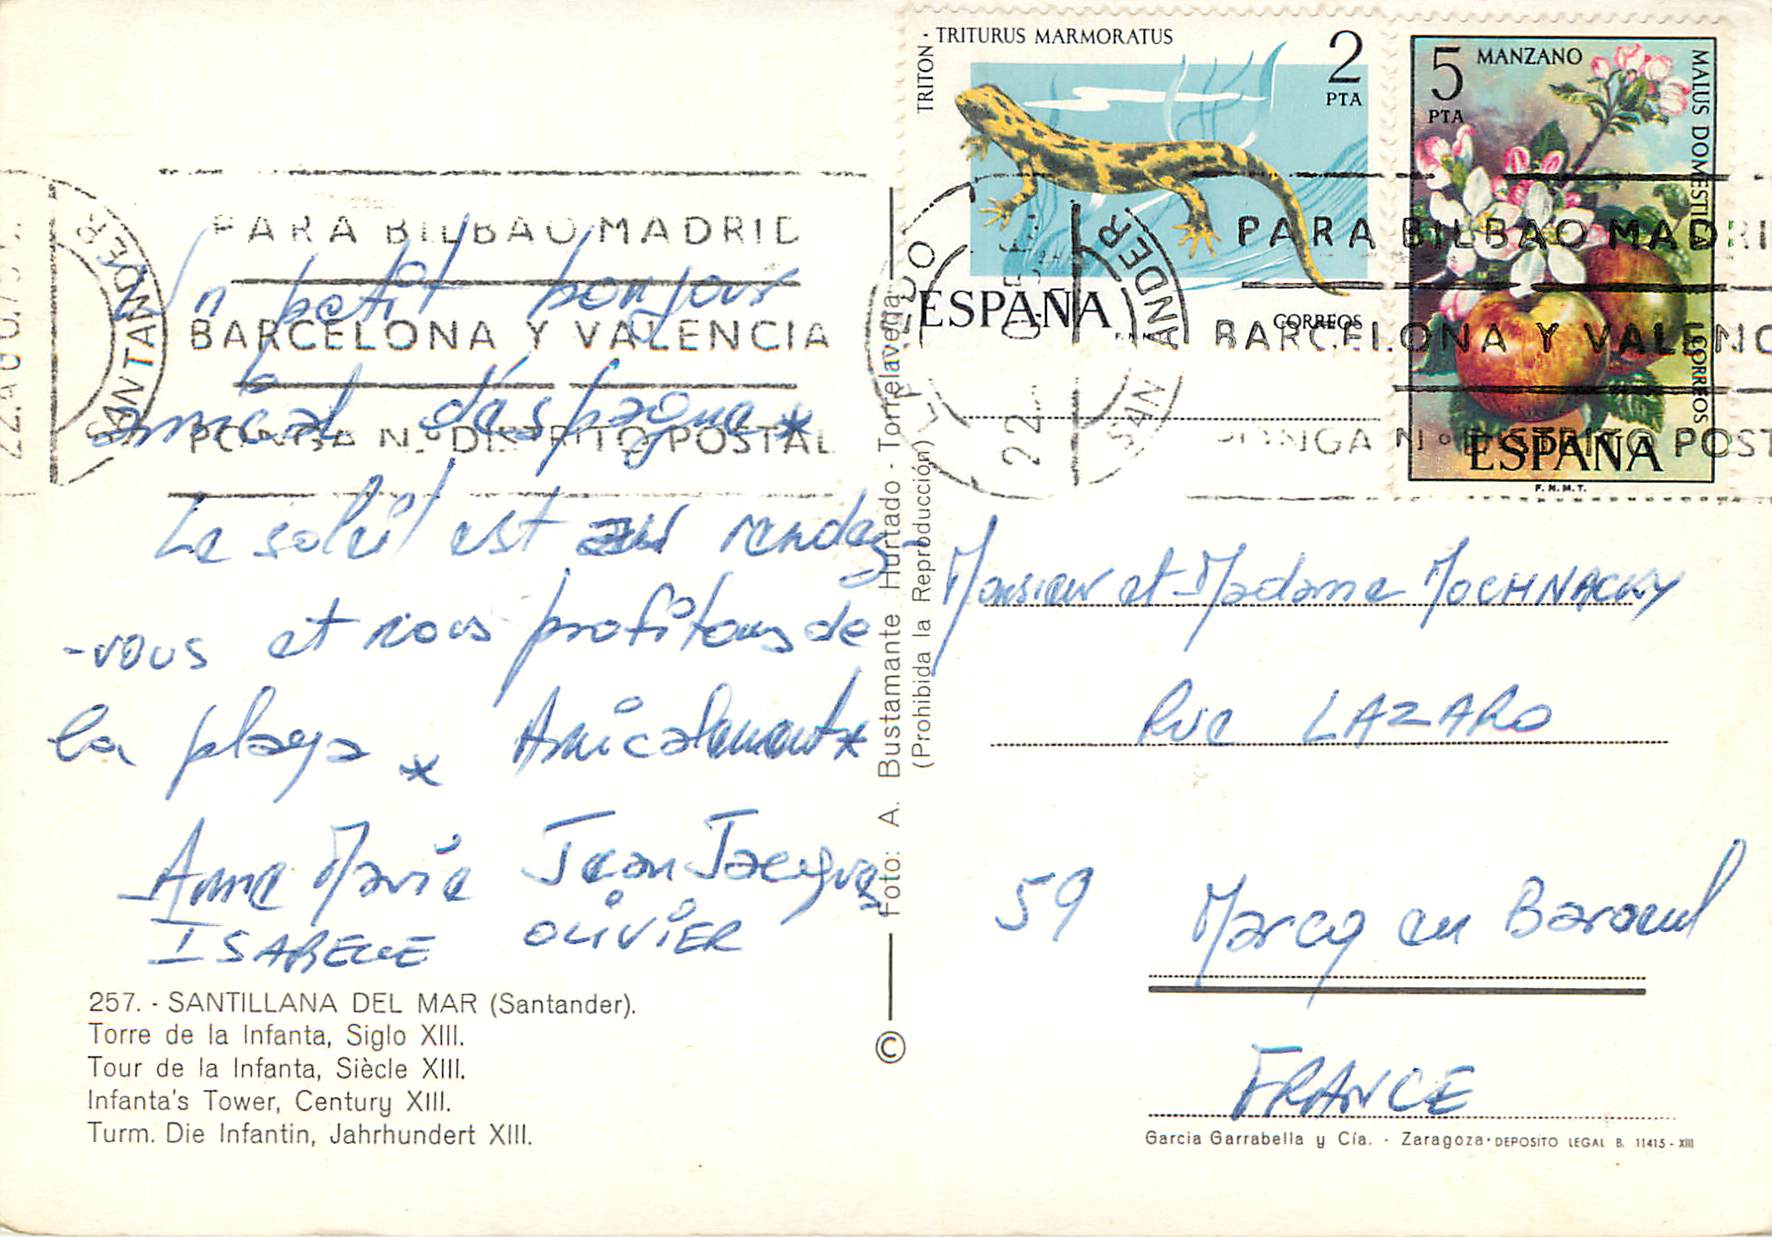 Un petit bonjour
amical d'espagne *
Le soleil est au rendez-
-vous et nous profitons de
la playa * Amicalement *
Anne Marie Jean Jacques
ISABELLE OLIVIER
257. - SANTILLANA DEL MAR (Santander).
Torre de la Infanta, Siglo XIII.
Tour de la Infanta, Siècle XIII.
Infanta's Tower, Century XIII.
Turm. Die Infantin, Jahrhundert XIII.
PARA BILBAO MADRID
BARCELONA Y VALENCIA
PONGA N.º DISTRITO POSTAL
SANTANDER
Foto: A. Bustamante Hurtado - Torrelavega
(Prohibida la Reproducción)
©
TRITON - TRITURUS MARMORATUS
2
PTA
ESPAÑA
CORREOS
5
PTA
MANZANO
MALUS DOMESTICA
CORREOS
ESPAÑA
F.N.M.T.
SANTANDER
22
PARA BILBAO MADRI
BARCELONA Y VALENC
PONGA N.º DISTRITO POST
Monsieur et Madame MOCHNACKY
Rue LAZARO
59 Marcq en Baroeul
FRANCE
Garcia Garrabella y Cía. - Zaragoza - DEPOSITO LEGAL B. 11415 - XIII